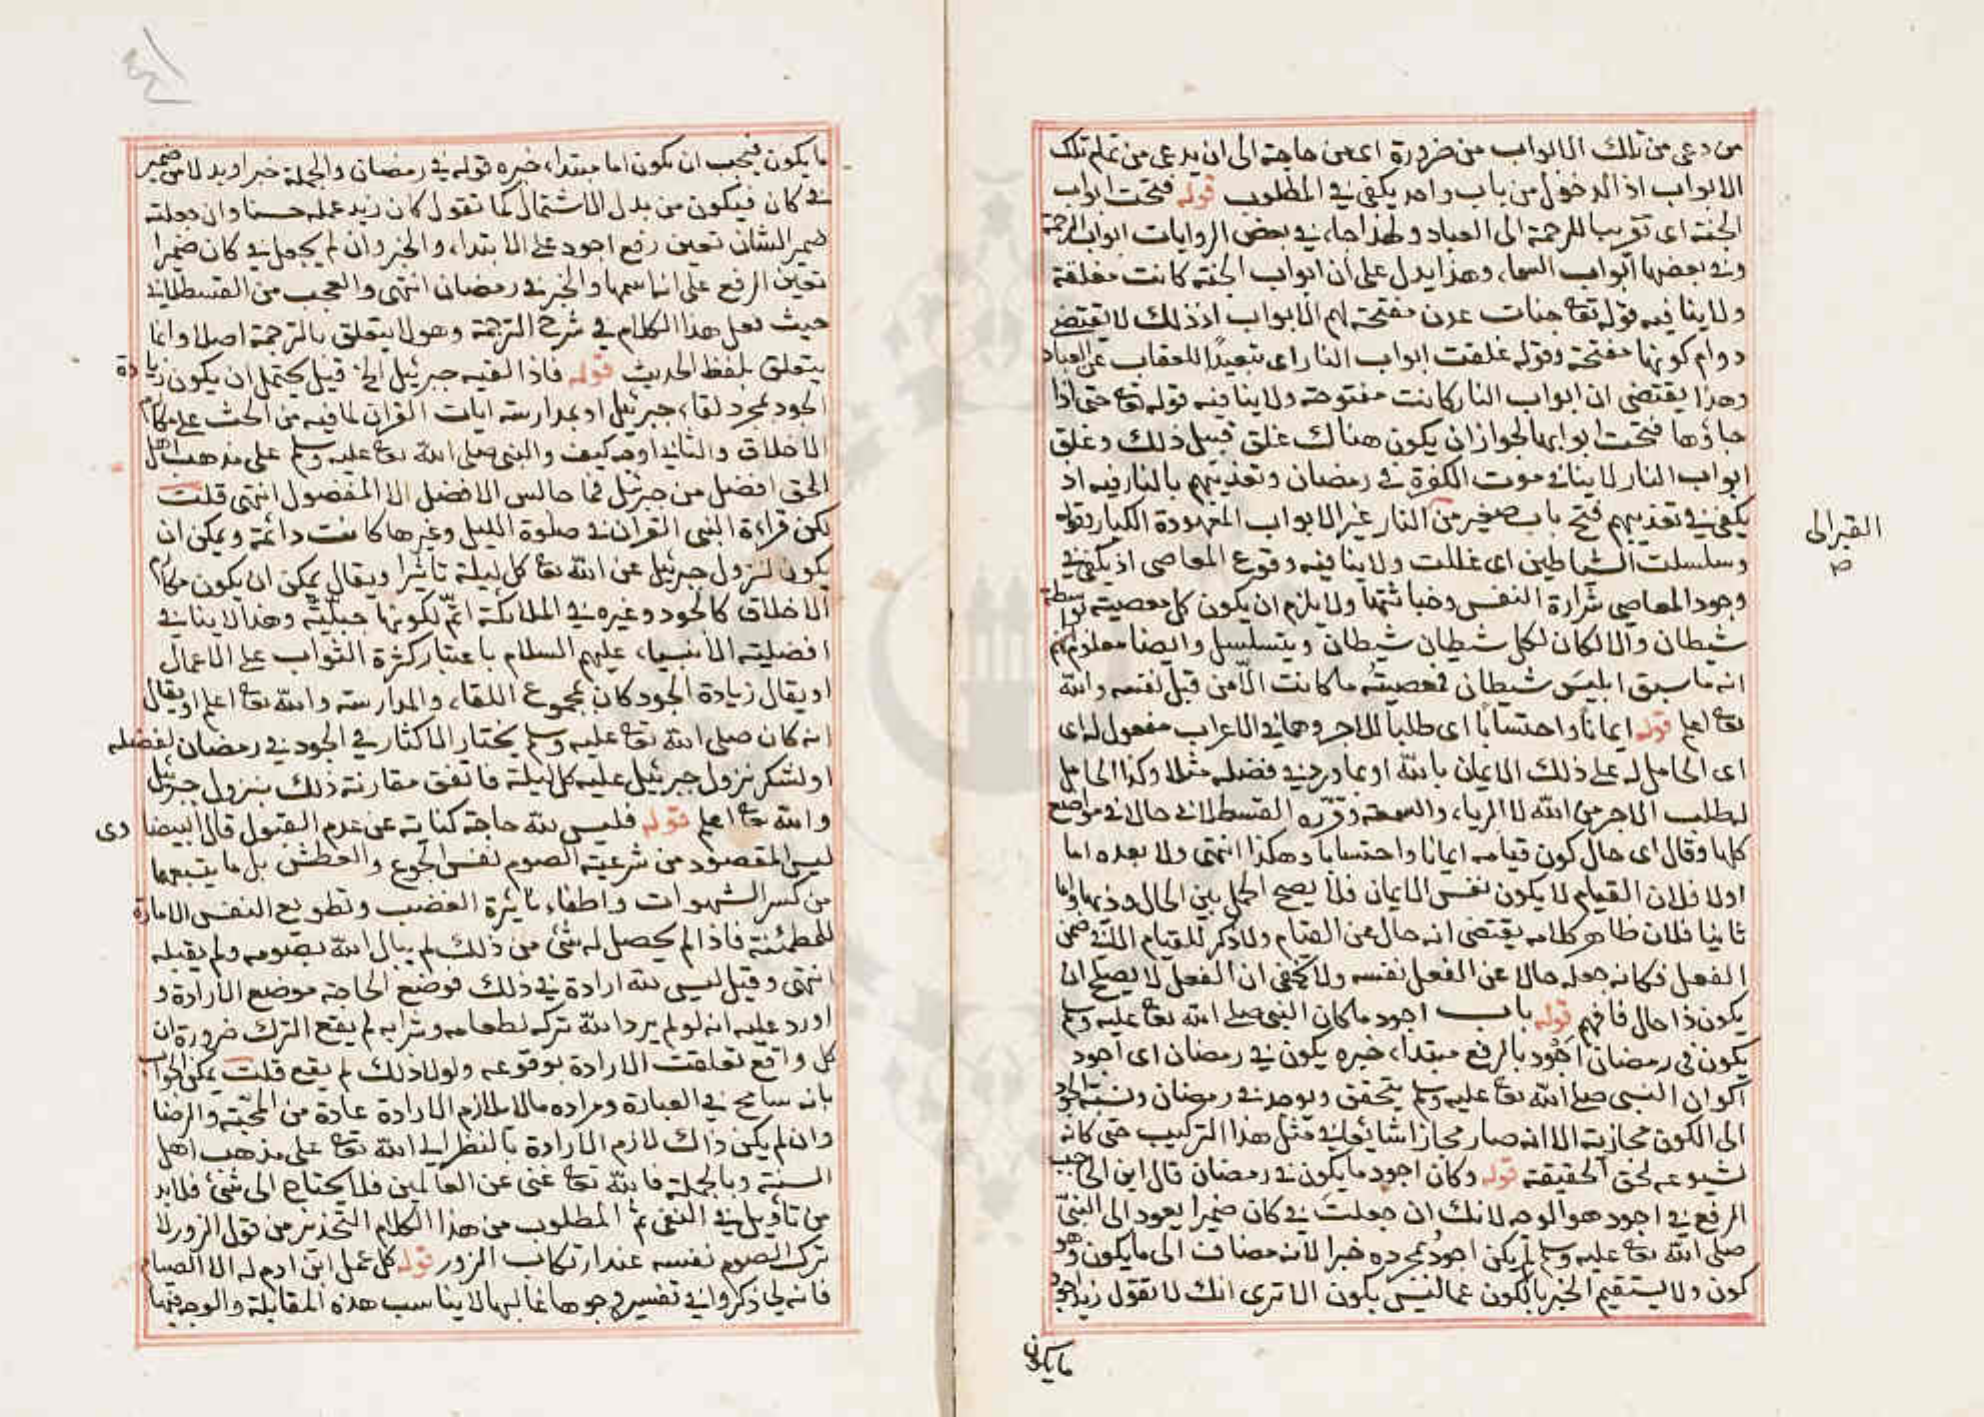 من دعى من تلك الابواب من ضرورة اى من حاجة الى ان يدعى من تمام تلك
الابواب اذ الدخول من باب واحد يكفى فى المطلوب قوله فتحت ابواب
الجنة اى تقريبا للرحمة الى العباد ولهذا جاء فى بعض الروايات ابواب الرحمة
وفى بعضها ابواب السماء وهذا يدل على ان ابواب الجنة كانت مغلقة
ولا ينافيه قوله تعا جنات عدن مفتحة لهم الابواب اذ ذلك لا يقتضى
دوام كونها مفتحة وقوله غلقت ابواب النار اى تبعيدًا للعقاب عن العباد
وهذا يقتضى ان ابواب النار كانت مفتوحة ولا ينافيه قوله تعا حتى اذا
جاؤها فتحت ابوابها لجواز ان يكون هناك غلق قبيل ذلك وغلق
ابواب النار لا ينافى موت الكفرة فى رمضان وتعذيبهم بالنار فيه اذ
يكفى فى تعذيبهم فتح باب صغير من النار غير الابواب المعهودة الكبار وقوله
وسلسلت الشياطين اى غللت ولا ينافيه وقوع المعاصى اذ يكفى فى
وجود المعاصى شرارة النفس وخباثتها ولا يلزم ان يكون كل معصية بواسطة
شيطان والا لكان لكل شيطان شيطان ويتسلسل وايضا معلوم
انه ما سبق ابليسَ شيطان فمعصيتُه ما كانت الّا من قبل نفسه والله
تعا اعلم قوله ايمانًا واحتسابًا اى طلبا للاجر وهما فى الاعراب مفعول له اى
اى الحامل له على ذلك الايمان بالله او بما ورد فى فضله مثلا وكذا الحامل
لطلب الاجر من الله لا الرياء والسمعة وقرّره القسطلانى حالا فى مواضع
كلها وقال اى حال كون قيامه ايمانا واحتسابا وهكذا انتهى ولا بعده اما
اولا فلان القيام لا يكون نفس الايمان فلا يصح الحمل بين الحال وذيها واما
ثانيا فلان ظاهر كلامه يقتضى انه حال عن القيام ولا ذكر للقيام الا فى ضمن
الفعل فكانه جعله حالا عن الفعل نفسه ولا يخفى ان الفعل لا يصلح ان
يكون ذا حال فافهم قوله باب اجود ما كان النبى صلى الله تعا عليه وسلم
يكون فى رمضان اجود بالرفع مبتداء خبره يكون فى رمضان اى اجود
اكوان النبى صلى الله تعا عليه وسلم يتحقق ويوجد فى رمضان ونسبة الجود
الى الكون مجازية الا انه صار مجازا شائعا فى مثل هذا التركيب حتى كانه
لشيوعه لحق الحقيقة قوله وكان اجود ما يكون فى رمضان قال ابن الحاجب
الرفع فى اجود هو الوجه لانك ان جعلت فى كان ضميرا يعود الى النبى
صلى الله تعا عليه وسلم لم يكن اجود بمجرده خبرا لانه مضاف الى ما يكون وهو
كون ولا يستقيم الخبر بالكون عما ليس بكون الا ترى انك لا تقول زيد اجود
القبر الى
ص
ما يكون
ما يكون فيجب ان يكون اما مبتداء خبره قوله فى رمضان والجملة خبر او بدلا من ضمير
فى كان فيكون من بدل الاشتمال كما تقول كان زيد عمله حسنا وان جعلته
ضمير الشان تعين رفع اجود على الابتداء والخبر وان لم يجعل فى كان ضميرا
تعين الرفع على انها اسمها والخبر فى رمضان انتهى والعجب من القسطلانى
حيث نقل هذا الكلام فى شرح الترجمة وهو لا يتعلق بالترجمة اصلا وانما
يتعلق بلفظ الحديث قوله فاذا لقيه جبرئيل الخ قيل يحتمل ان يكون زيادة
الجود بمجرد لقاء جبرئيل او بمدارسته ايات القران لما فيه من الحث على مكارم
الاخلاق والثانى اوجه كيف والنبى صلى الله تعا عليه وسلم على مذهب اهل
الحق افضل من جبرئيل فما جالس الافضل الا المفضول انتهى قلت
لكن قراءة النبى القران فى صلوة الليل وغيرها كانت دائمة ويمكن ان
يكون لنزول جبرئيل عن الله تعا كل ليلة تاثيرا ويقال يمكن ان يكون مكارم
الاخلاق كالجود وغيره فى الملائكة اتم لكونها جبلّيّة وهذا لا ينافى
افضلية الانبياء عليهم السلام باعتبار كثرة الثواب على الاعمال
او يقال زيادة الجود كان بمجموع اللقاء والمدارسة والله تعا اعلم او يقال
انه كان صلى الله تعا عليه وسلم يختار الاكثار فى الجود فى رمضان لفضله
او لشكر نزول جبرئيل عليه كل ليلة فاتفق مقارنة ذلك بنزول جبرئيل
والله تعا اعلم قوله فليس لله حاجة كناية عن عدم القبول قال البيضاوى
ليس المقصود من شرعية الصوم نفس الجوع والعطش بل ما يتبعهما
من كسر الشهوات واطفاء نائرة الغضب وتطويع النفس الامارة
للمطمئنة فاذا لم يحصل له شئ من ذلك لم يبال الله بصومه ولم يقبله
انتهى وقيل ليس لله ارادة فى ذلك فوضع الحاجة موضع الارادة و
اورد عليه انه لو لم يرد الله تركه لطعامه وشرابه لم يقع الترك ضرورة ان
كل واقع تعلقت الارادة بوقوعه ولولا ذلك لم يقع قلت يمكن الجواب
بانه سامح فى العبارة ومراده ما لا يلازم الارادة عادة من المحبّة والرضا
وان لم يكن ذاك لازم الارادة بالنظر الى الله تعا على مذهب اهل
السنة وبالجملة فالله تعا غنى عن العالمين فلا يحتاج الى شئ فلا بد
من تأويل فى النفى ثم المطلوب من هذا الكلام التحذير من قول الزور لا
ترك الصوم نفسه عند ارتكاب الزور قوله كل عمل ابن ادم له الا الصيام
فانه لى ذكروا فى تفسيره وجوها غالبها لا يناسب هذه المقابلة والوجه فيها